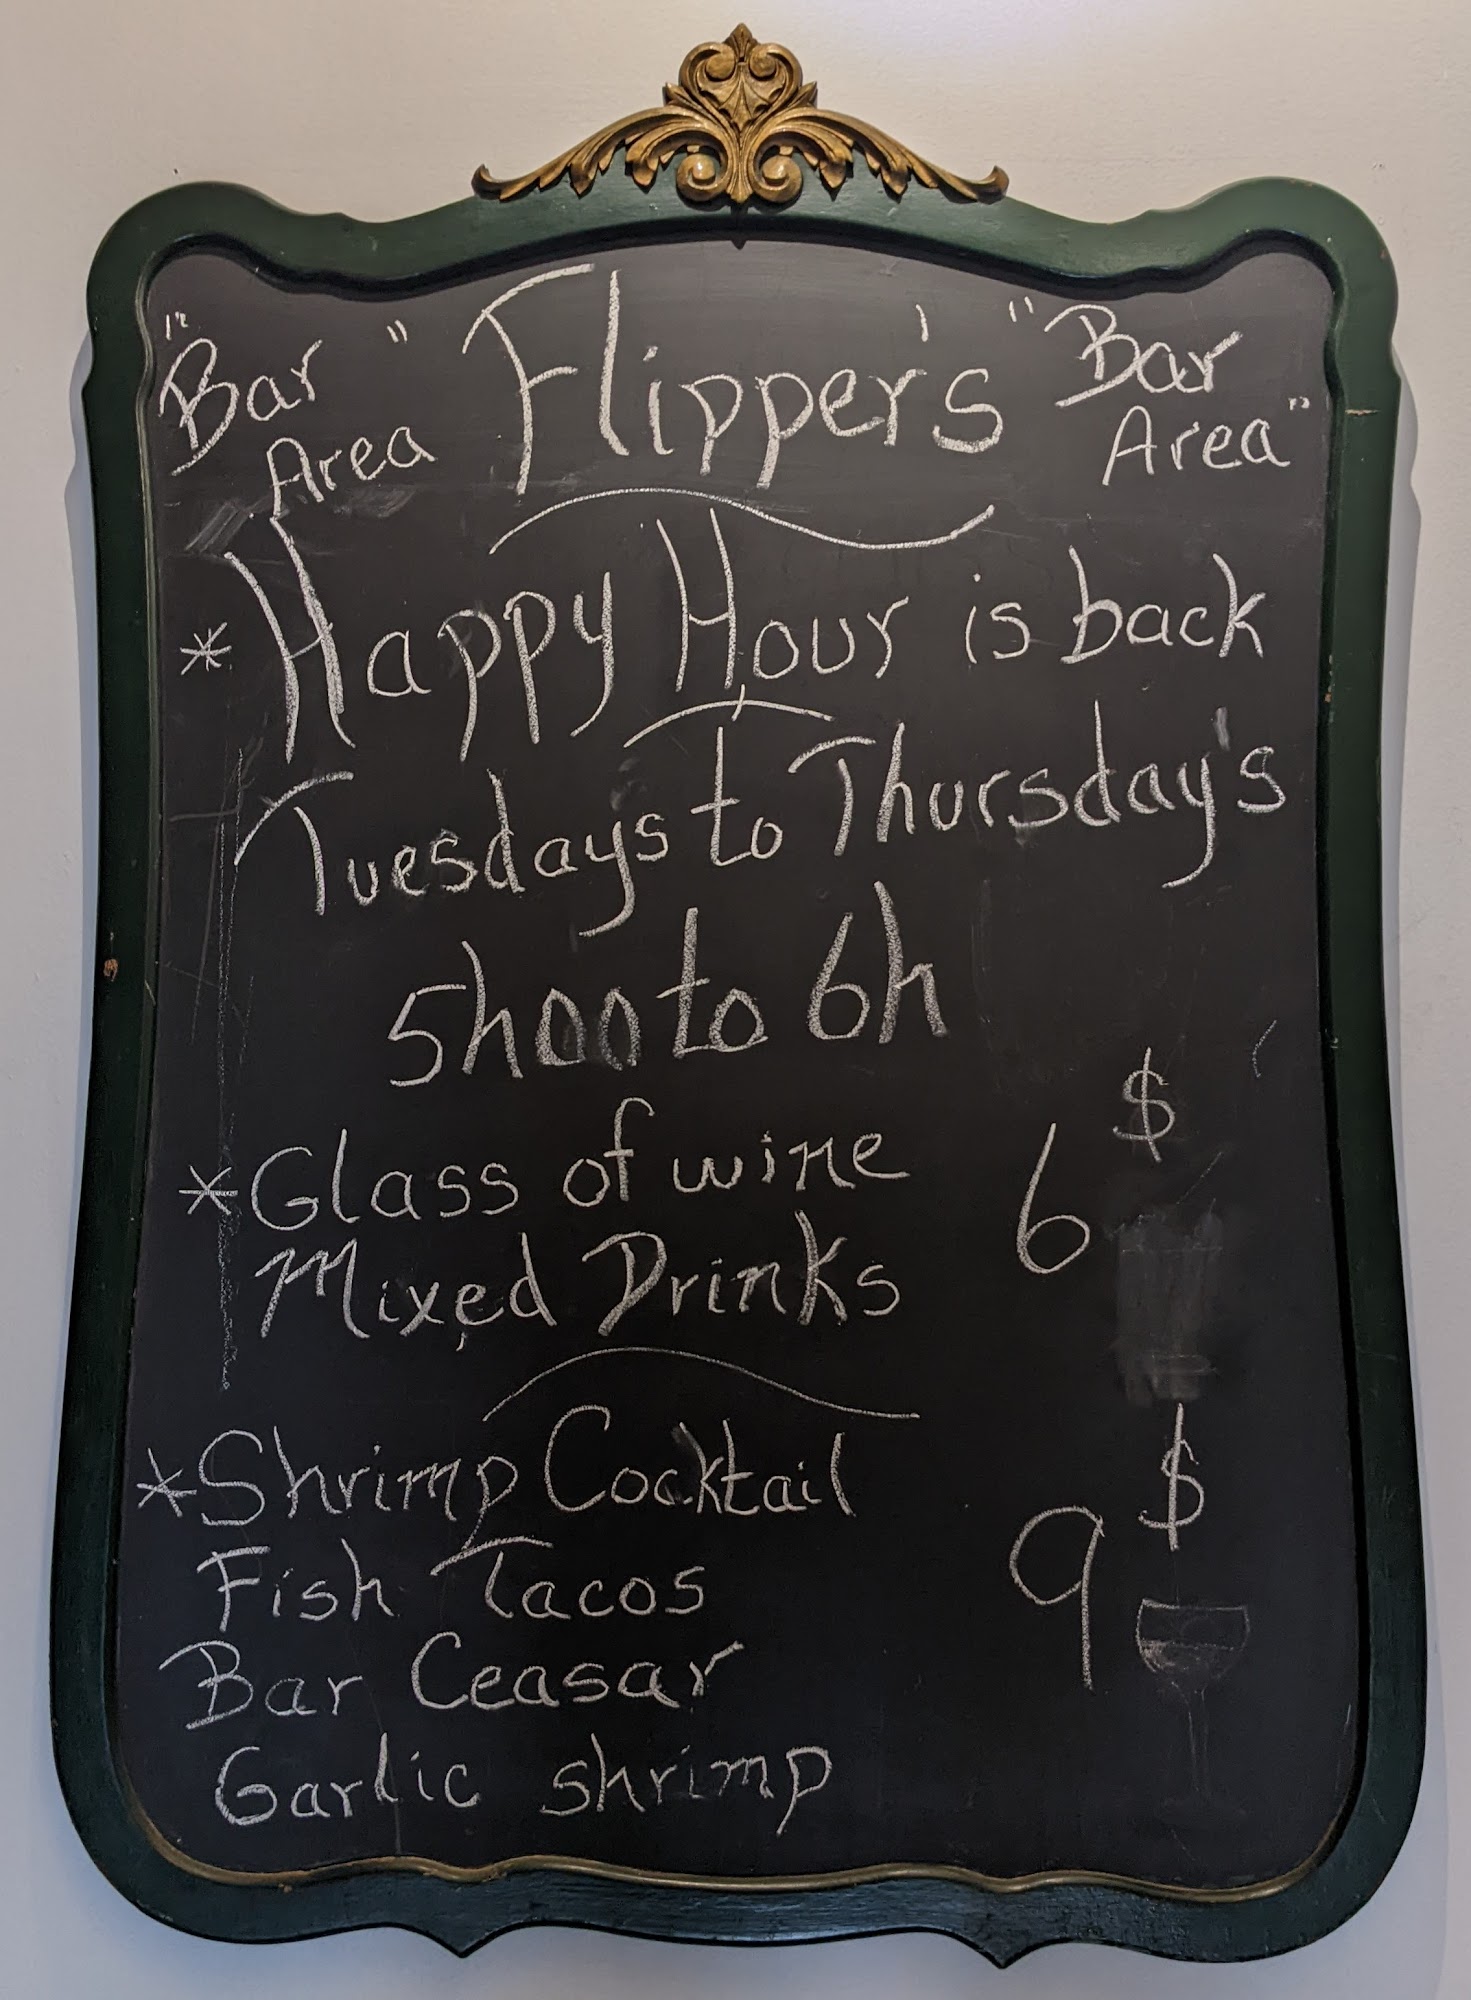 "Bar Area" Flipper's "Bar Area"
* Happy Hour is back
Tuesdays to Thursday's
5h00 to 6h
* Glass of wine 6$
Mixed Drinks
* Shrimp Cocktail
Fish Tacos 9$
Bar Ceasar
Garlic shrimp